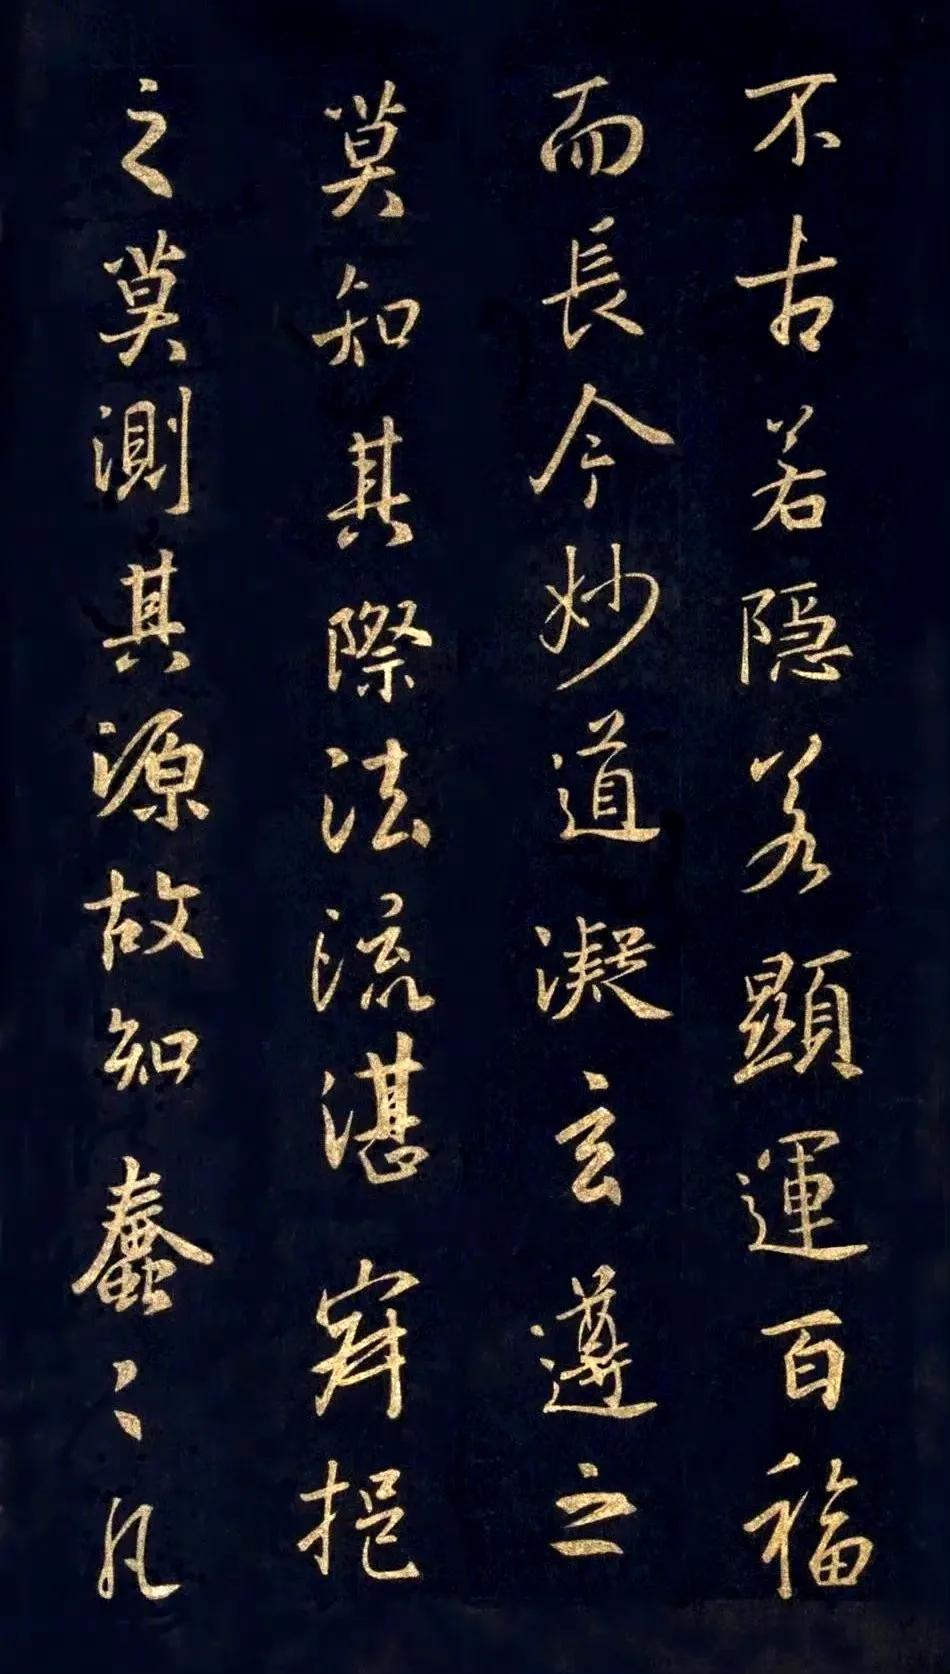 不古若隱若顯運百福
而長今妙道凝玄遵之
莫知其際法流湛寂挹
之莫測其源故知蠢〻凡